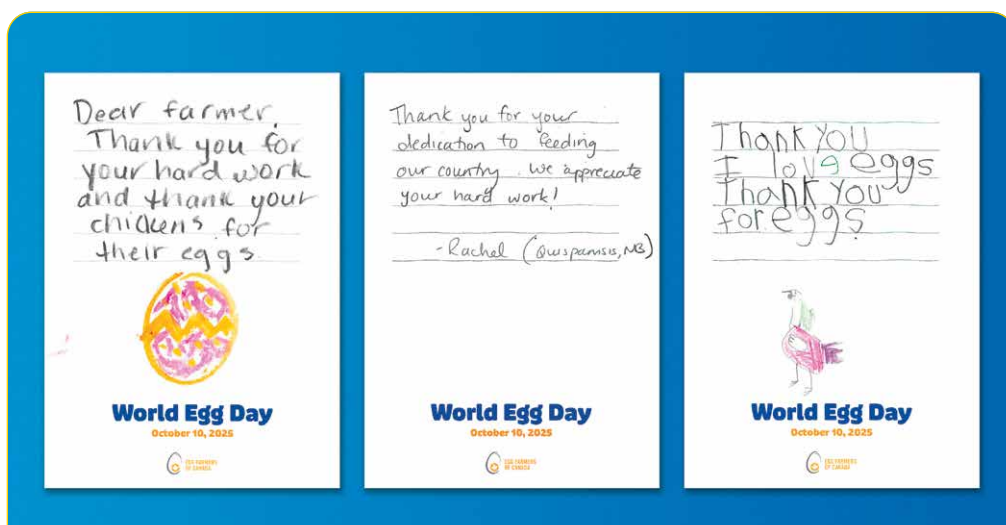 Dear farmer.
Thank you for
your hard work
and thank your
chickens for
their eggs
World Egg Day
October 10, 2025
EGG FARMERS
OF CANADA
Thank you for your
dedication to feeding
our country. We appreciate
your hard work!
-Rachel (Quispamsis, NB)
World Egg Day
October 10, 2025
EGG FARMERS
OF CANADA
Thank you
I love eggs
Thank you
for eggs.
World Egg Day
October 10, 2025
EGG FARMERS
OF CANADA